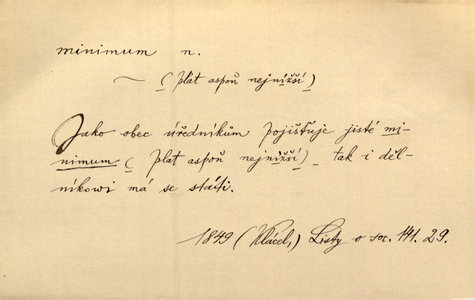 minimum n.
~ (plat aspoň nejnižší)
Jako obec úředníkům pojišťuje jisté mi-
nimum (plat aspoň nejnižší) tak i děl-
níkowi má se státi.
1849 (Klácel, Listy o soc. 141. 29.